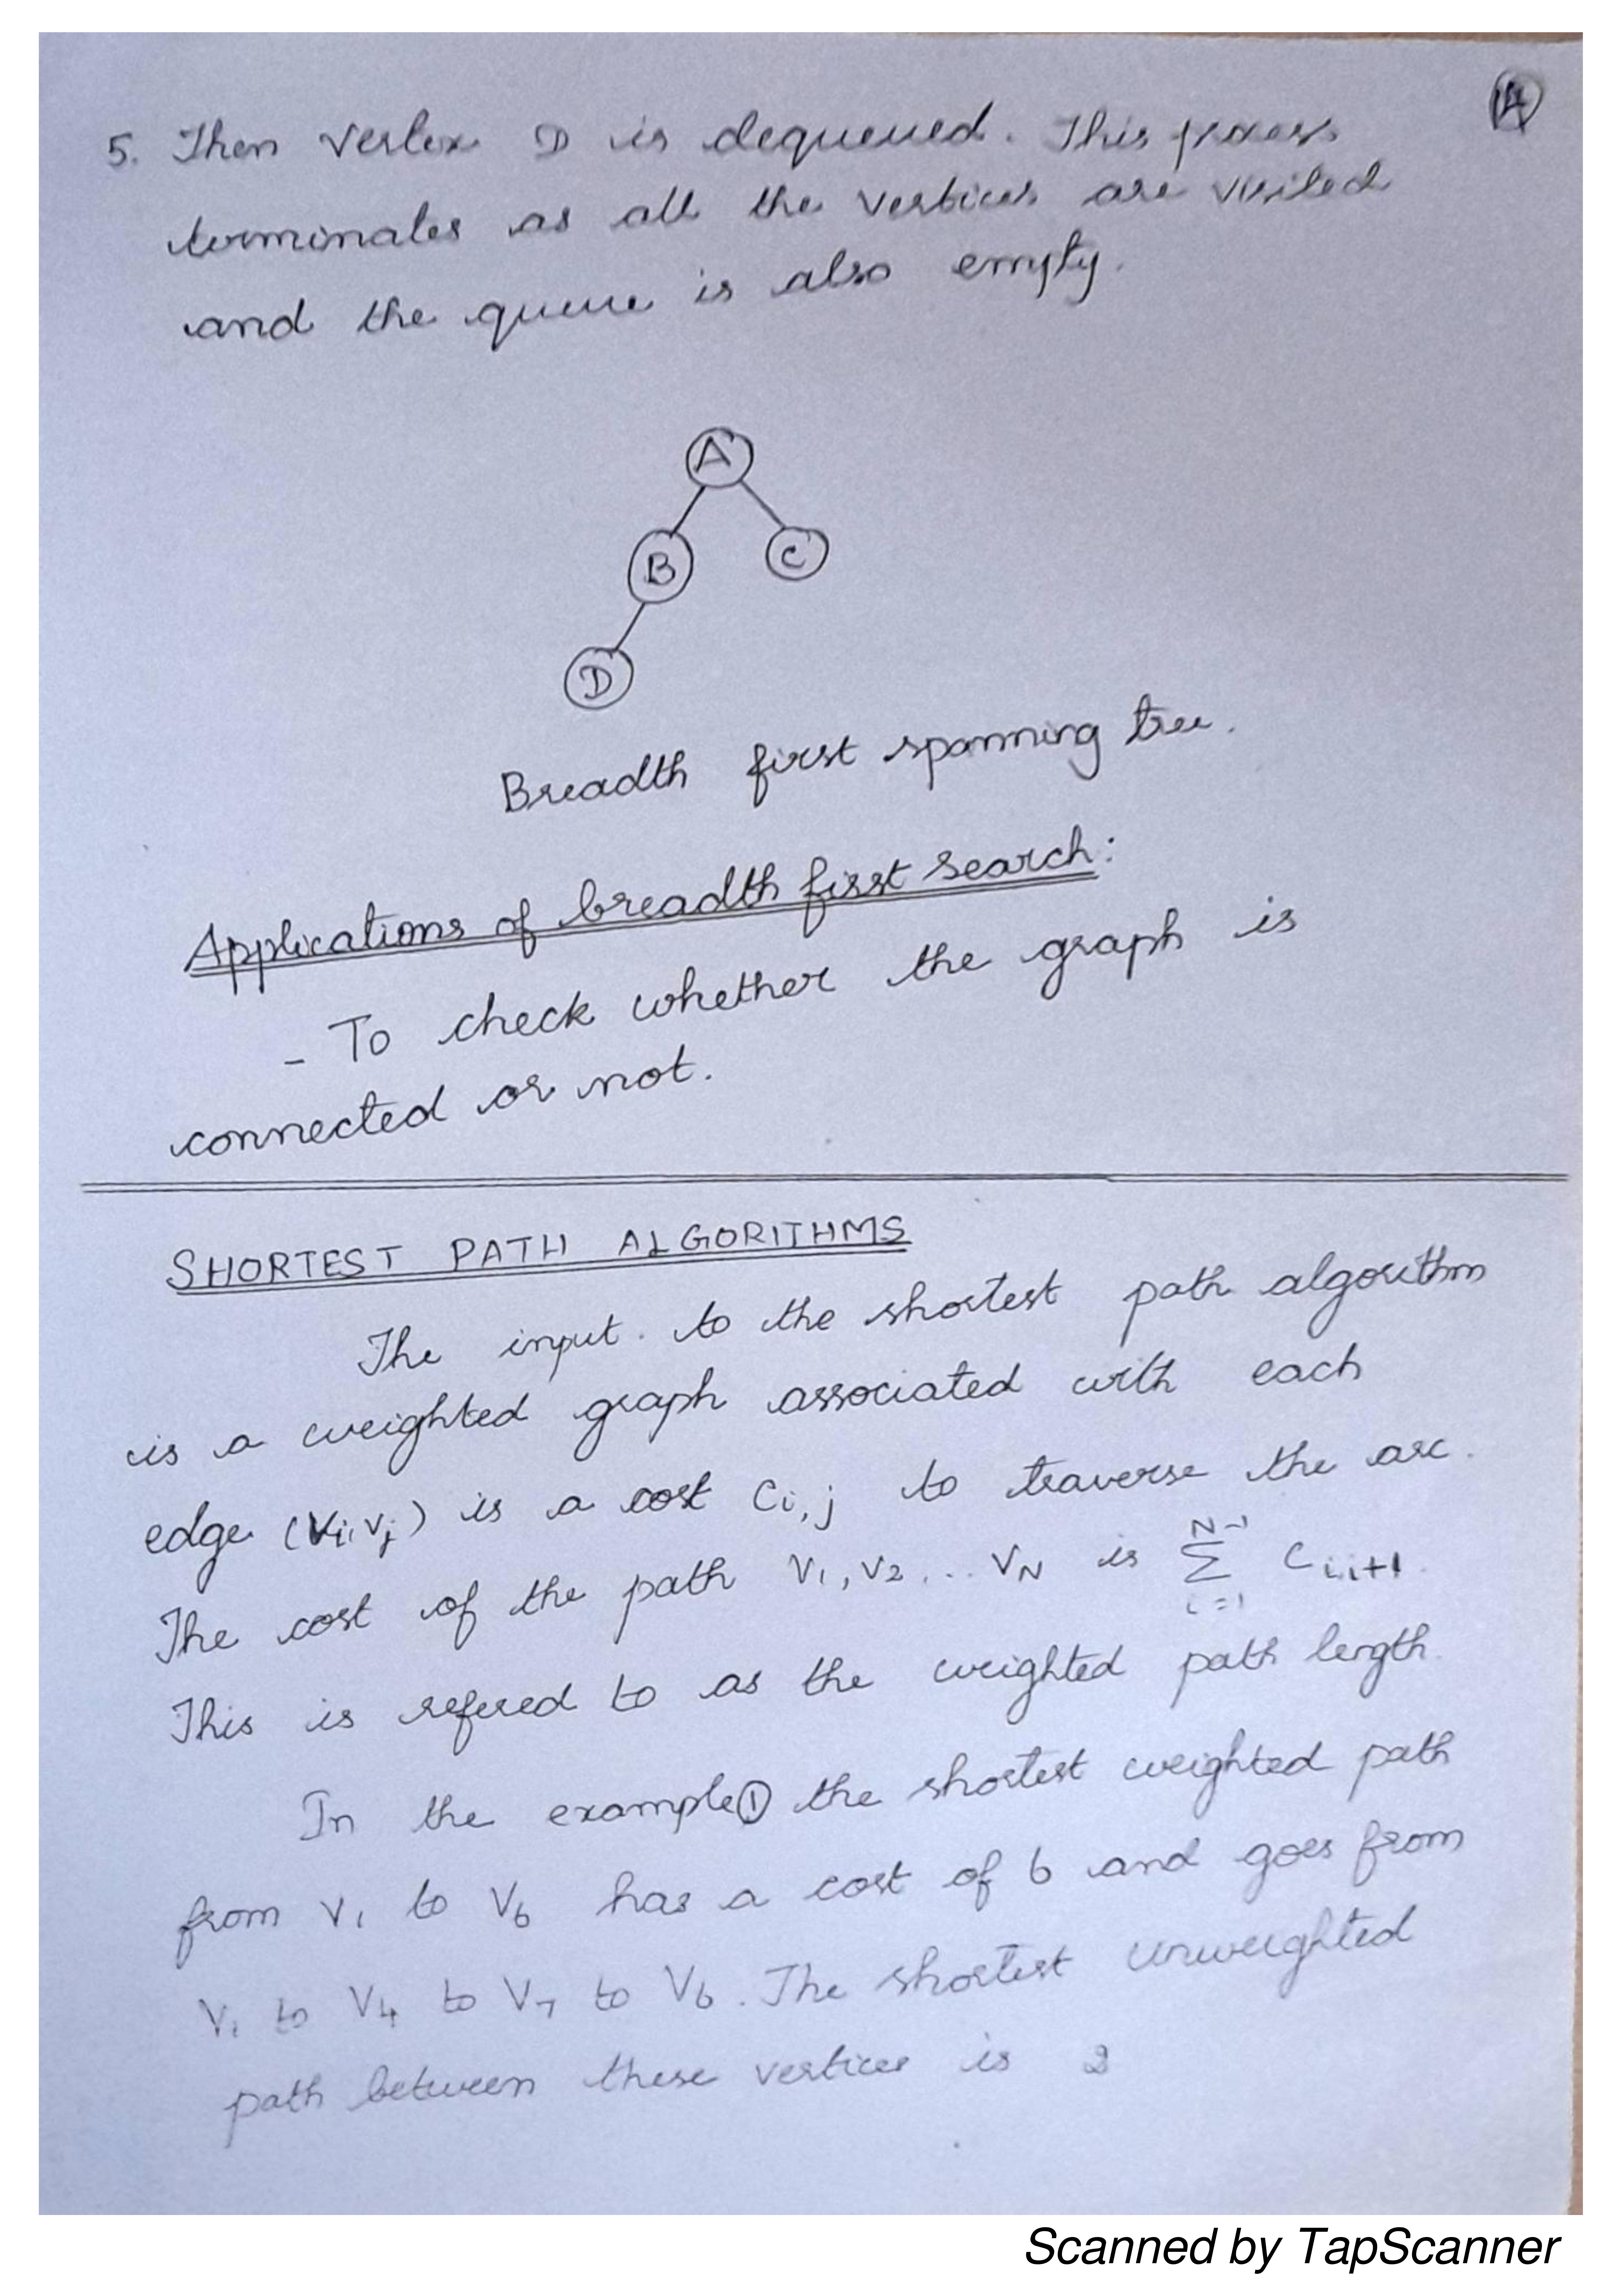 14
5. Then Vertex D is dequeued. This process
terminates as all the vertices are visited
and the queue is also empty.
A
B C
D
Breadth first spanning tree.
Applications of breadth first search:
- To check whether the graph is
connected or not.
SHORTEST PATH ALGORITHMS
The input to the shortest path algorithm
is a weighted graph associated with each
edge (Vi, Vj) is a cost Ci,j to traverse the arc.
The cost of the path V1, V2 ... VN is ∑ i=1 N-1 Ci,i+1
This is refered to as the weighted path length.
In the example① the shortest weighted path
from V1 to V6 has a cost of 6 and goes from
V1 to V4 to V7 to V6. The shortest unweighted
path between these vertices is
Scanned by TapScanner